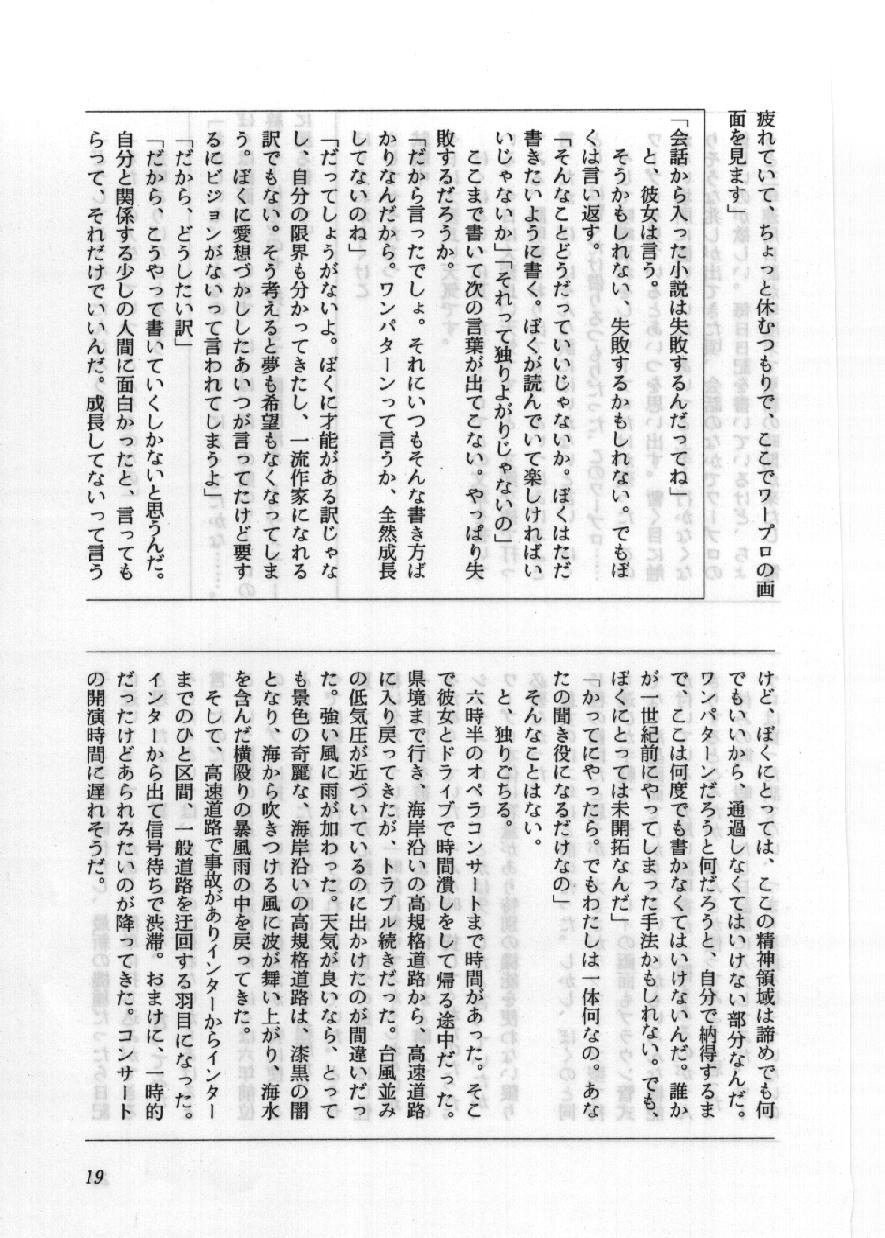 疲れていて、ちょっと休むつもりで、ここでワープロの画
面を見ます」
「会話から入った小説は失敗するんだってね」
と、彼女は言う。
そうかもしれない、失敗するかもしれない。でもぼ
くは言い返す。
「そんなことどうだっていいじゃないか。ぼくはただ
書きたいように書く。ぼくが読んでいて楽しければい
いじゃないか」「それって独りよがりじゃないの」
ここまで書いて次の言葉が出てこない。やっぱり失
敗するだろうか。
「だから言ったでしょ。それにいつもそんな書き方ば
かりなんだから。ワンパターンって言うか、全然成長
してないのね」
「だってしょうがないよ。ぼくに才能がある訳じゃな
し、自分の限界も分かってきたし、一流作家になれる
訳でもない。そう考えると夢も希望もなくなってしま
う。ぼくに愛想づかししたあいつが言ってたけど要す
るにビジョンがないって言われてしまうよ」
「だから、どうしたい訳」
「だから、こうやって書いていくしかないと思うんだ。
自分と関係する少しの人間に面白かったと、言っても
らって、それだけでいいんだ。成長してないって言う
けど、ぼくにとっては、ここの精神領域は諦めでも何
でもいいから、通過しなくてはいけない部分なんだ。
ワンパターンだろうと何だろうと、自分で納得するま
で、ここは何度でも書かなくてはいけないんだ。誰か
が一世紀前にやってしまった手法かもしれない。でも、
ぼくにとっては未開拓なんだ」
「かってにやったら。でもわたしは一体何なの。あな
たの聞き役になるだけなの」
そんなことはない。
と、独りごちる。
六時半のオペラコンサートまで時間があった。そこ
で彼女とドライブで時間潰しをして帰る途中だった。
県境まで行き、海岸沿いの高規格道路から、高速道路
に入り戻ってきたが、トラブル続きだった。台風並み
の低気圧が近づいているのに出かけたのが間違いだっ
た。強い風に雨が加わった。天気が良いなら、とって
も景色の奇麗な、海岸沿いの高規格道路は、漆黒の闇
となり、海から吹きつける風に波が舞い上がり、海水
を含んだ横殴りの暴風雨の中を戻ってきた。
そして、高速道路で事故がありインターからインター
までのひと区間、一般道路を迂回する羽目になった。
インターから出て信号待ちで渋滞。おまけに、一時的
だったけどあられみたいのが降ってきた。コンサート
の開演時間に遅れそうだ。
19